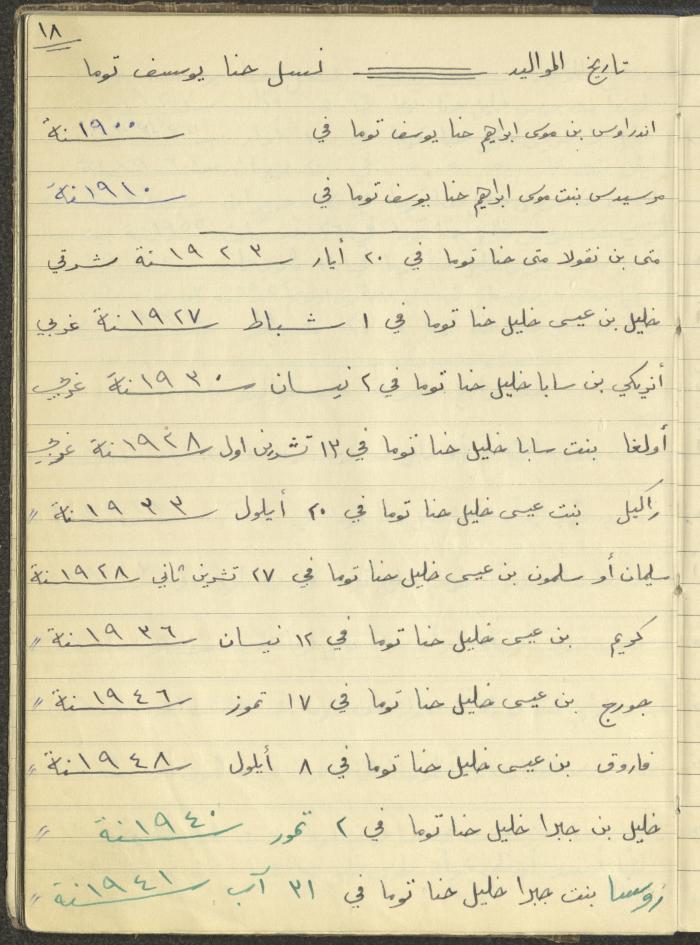 ١٨
تاريخ المواليد نسل حنا يوسف توما
اندراوس بن موسى ابراهيم حنا يوسف توما في سنة ١٩٠٠
مرسيدس بنت موسى ابراهيم حنا يوسف توما في سنة ١٩١٠
متى بن نقولا متى حنا توما في ٢٠ أيار سنة ١٩٢٣ شرقي
خليل بن عيسى خليل حنا توما في ١ شباط سنة ١٩٢٧ غربي
أنريكي بن سابا خليل حنا توما في ٢ نيسان سنة ١٩٣٠ غربي
أولغا بنت سابا خليل حنا توما في ١٣ تشرين اول سنة ١٩٢٨ غربي
راكيل بنت عيسى خليل حنا توما في ٢٠ أيلول سنة ١٩٣٣ "
سليمان أو سلمون بن عيسى خليل حنا توما في ٢٧ تشرين ثاني سنة ١٩٢٨
كريم بن عيسى خليل حنا توما في ١٢ نيسان سنة ١٩٣٦ "
جورج بن عيسى خليل حنا توما في ١٧ تموز سنة ١٩٤٦ "
فاروق بن عيسى خليل حنا توما في ٨ أيلول سنة ١٩٤٨ "
خليل بن جبرا خليل حنا توما في ٢ تموز سنة ١٩٤٠ "
روسا بنت جبرا خليل حنا توما في ٣١ آب سنة ١٩٤١ "